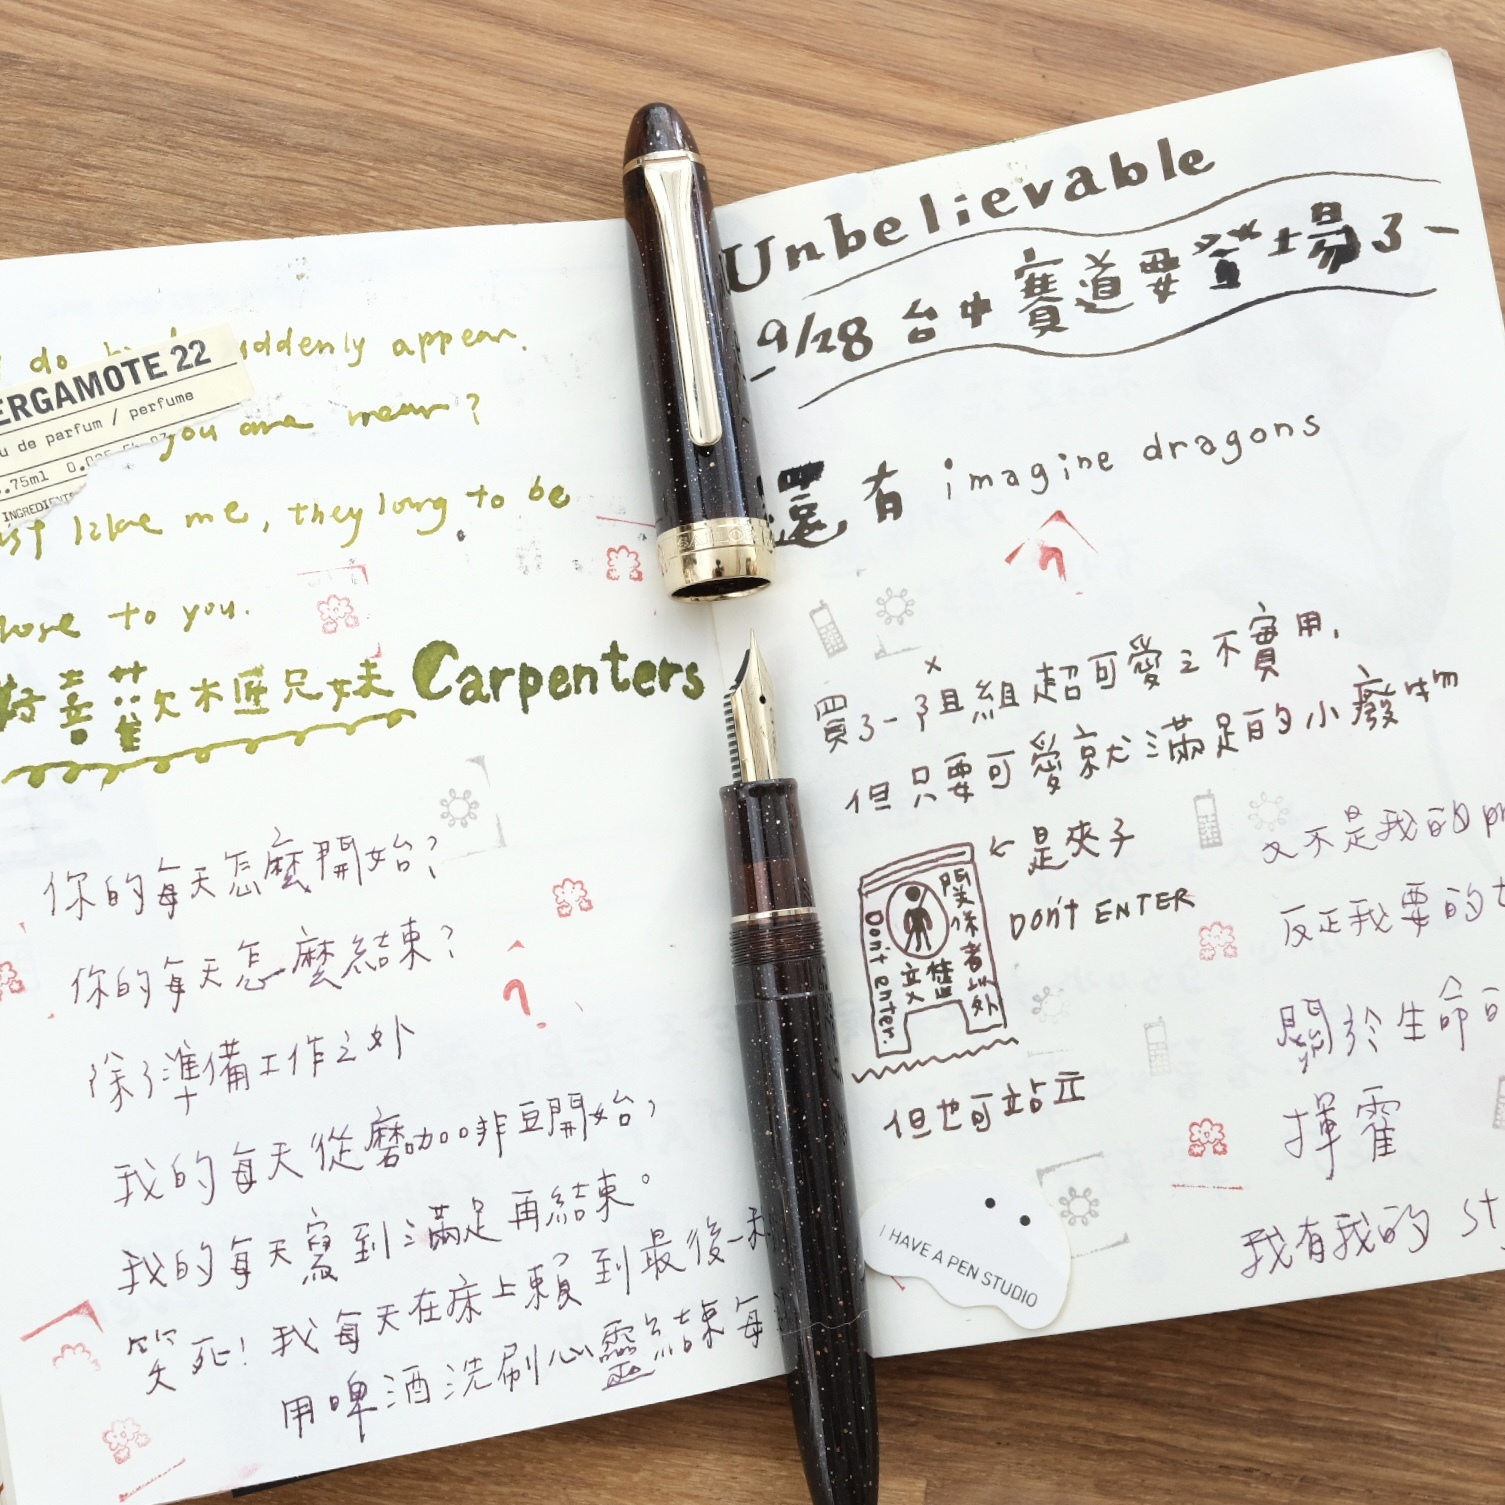 do suddenly appear.
ERGAMOTE 22
u de parfum / perfume
you are near?
.75ml
INGREDIENTS
ust like me, they long to be
lose to you.
好喜歡木匠兄妹 Carpenters
你的每天怎麼開始?
你的每天怎麼結束?
除了準備工作之外
我的每天從磨咖啡豆開始,
我的每天寫到滿足再結束。
笑死! 我每天在床上賴到最後一秒
用啤酒洗刷心靈結束每
Unbelievable
9/28 台中賽道要登場了-
還有 imagine dragons
買了一組超可愛之不實用,
但只要可愛就滿足的小廢物
← 是夾子
Don't ENTER
關係者以外
立入禁止
Don't enter.
但也可站立
又不是我的
反正我要的
關於生命的
揮霍
我有我的 st
I HAVE A PEN STUDIO